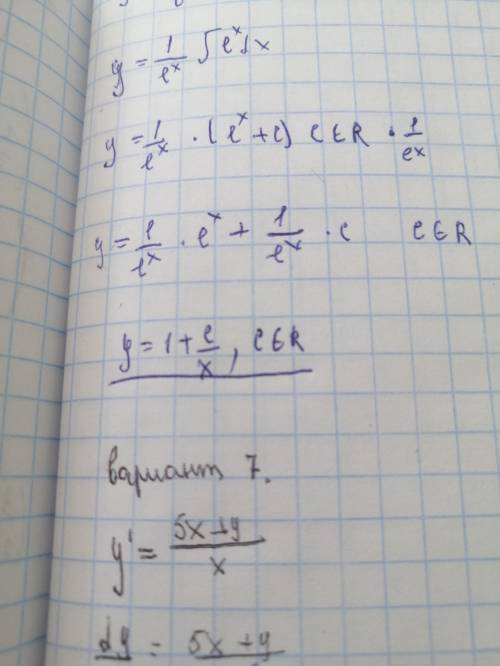 y = 1/eˣ ∫eˣdx
y = 1/eˣ · (eˣ + c) c∈R · 1/eˣ
y = 1/eˣ · eˣ + 1/eˣ · c c∈R
y = 1 + c/x, c∈R
вариант 7.
y' = (5x+y)/x
dy = 5x+y